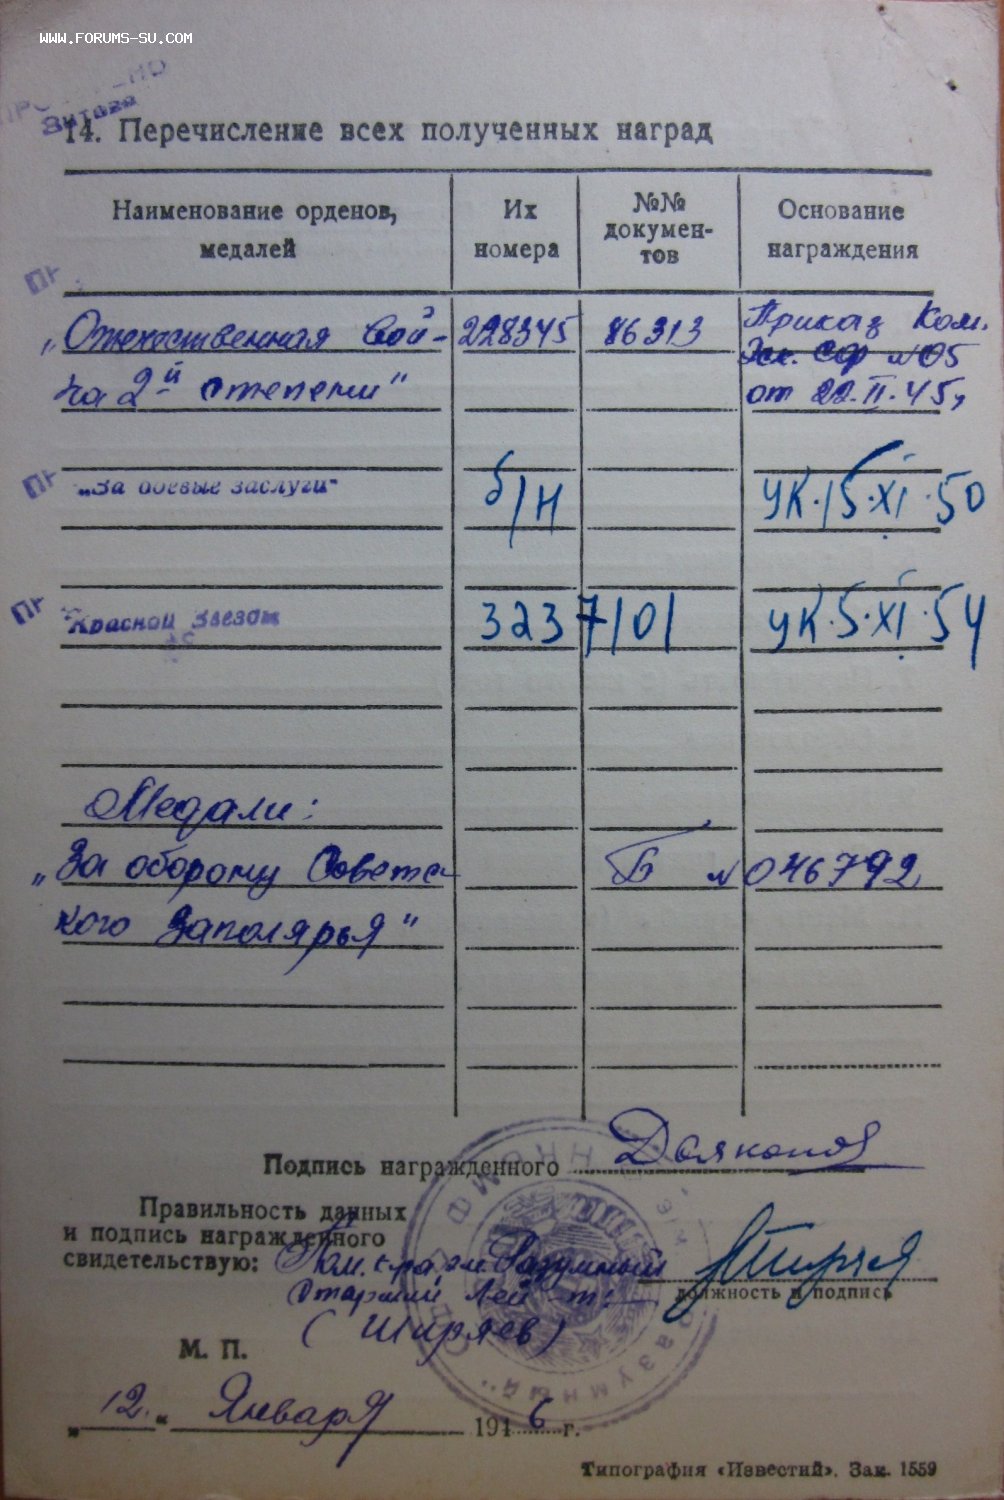 WWW.FORUMS-SU.COM
14. Перечисление всех полученных наград
Наименование орденов, медалей
Их номера
№№ докумен-тов
Основание награждения
„Отечественная вой- 228345 86313 Приказ Ком.
Эск. СФ №05
на 2й степени" от 22.II.45г
„За боевые заслуги" б/н УК.15.XI.50
Красной Звезды 3237101 УК.5.XI.54
Медали:
„За оборону Советс- Б №046792
кого Заполярья"
Подпись награжденного
Правильность данных
и подпись награжденного
свидетельствую: Пом. к-ра эм. Разумный
должность и подпись
Старший Лей-т:
(Ширяев)
М. П.
„12" Января 1946 г.
Типография «Известий». Зак. 1559